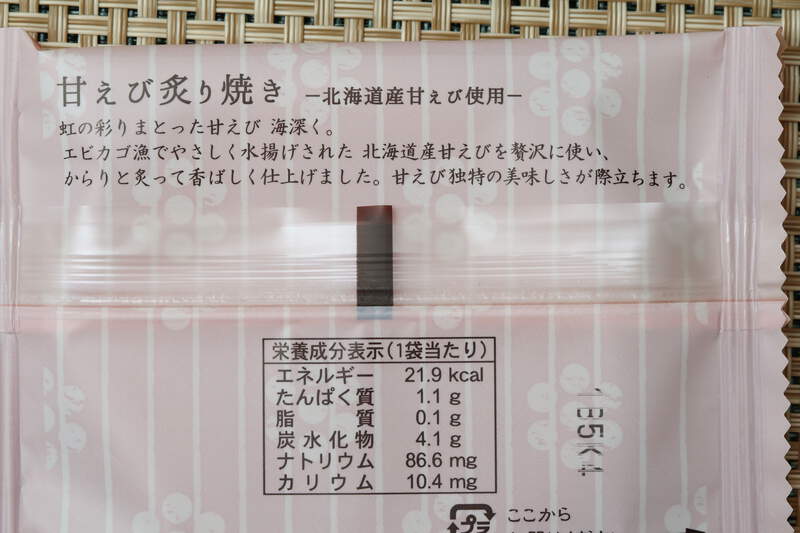 甘えび炙り焼き －北海道産甘えび使用－
虹の彩りまとった甘えび 海深く。
エビカゴ漁でやさしく水揚げされた 北海道産甘えびを贅沢に使い、
からりと炙って香ばしく仕上げました。甘えび独特の美味しさが際立ちます。
栄養成分表示（1袋当たり）
エネルギー 21.9 kcal
たんぱく質 1.1 g
脂質 0.1 g
炭水化物 4.1 g
ナトリウム 86.6 mg
カリウム 10.4 mg
1B5K4
プラ
ここから